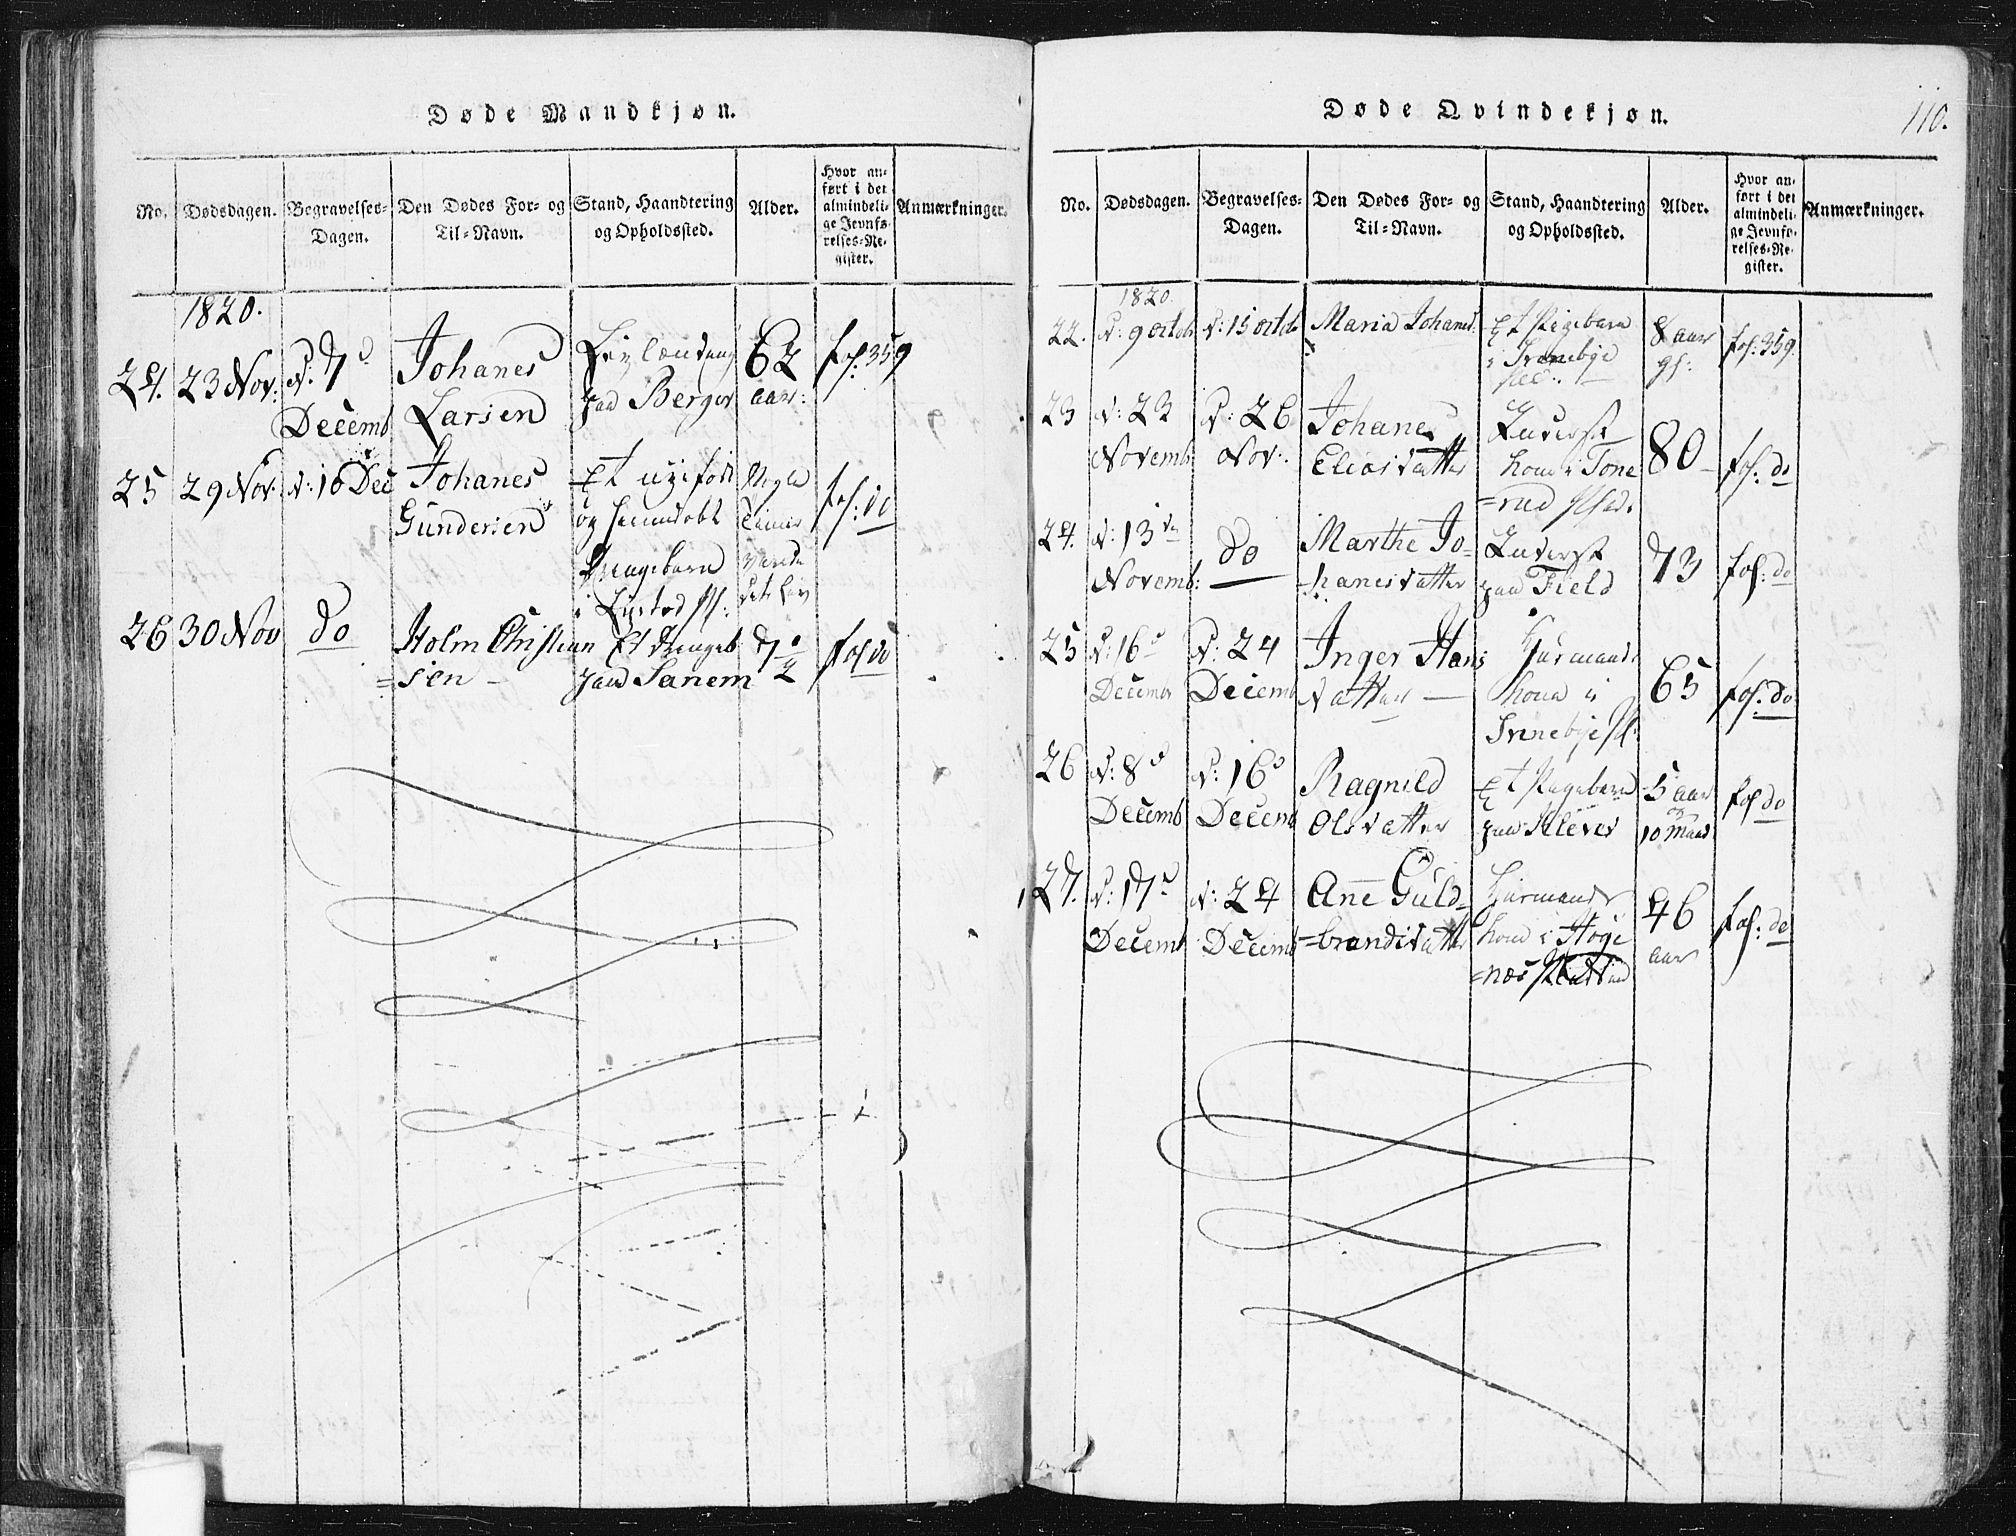 Døde Mandkjøn.
No.
Dødsdagen.
Begravelses-
Dagen.
Den Dødes For- og
Til-Navn.
Stand, Haandtering
og Opholdssted.
Alder.
Hvor an-
ført i det
almindeli-
ge Jevnfø-
relses-Re-
gister.
Anmærkninger.
1820.
24. 23 Nov: d: 7d
Decemb
Johanes
Larsen
paa Berger
62
aar:
fol: 359
25 29 Nov: d: 10 Dec
Johanes
Gundersen
Et
og
Drengebarn
i
Nogle
Timer
fol: do
26 30 Nov do
Holm Christian
=sen
Et Drengeb
paa Sanem
fol do
Døde Qvindekjøn.
110.
No.
Dødsdagen.
Begravelses-
Dagen.
Den Dødes For- og
Til-Navn.
Stand, Haandtering
og Opholdssted.
Alder.
Hvor an-
ført i det
almindeli-
ge Jevnfø-
relses-Re-
gister.
Anmærkninger.
1820.
22. d: 9 octob d: 15 octob Maria Johanes
Et Pigebarn
i
8 aar
gl:
fol: 359.
23 d: 23
Novemb
d: 26
Nov:
Johane
Eliasdatter
Inderst
kone i Tone
=rud
80
fol: do
24. d: 13de
Novemb:
do
Marthe Jo-
hanesdatter
Inderst
paa Field
73
fol: do
25 d: 16d
Decembr
d: 24
Decemb
Inger Hans
datter
Huusmands
kone i
65
fol: do
26 d: 8d
Decemb
d: 16d
Decemb
Ragnild
Olsdatter
Et Pigebarn
paa Klever
5 aar
10 Maan
fol do
27. d: 17d
Decemb
d: 24
Decemb
Ane Guld-
=brandsdatter
Huusmands
kone i Høge
=næs
46
aar
fol: do